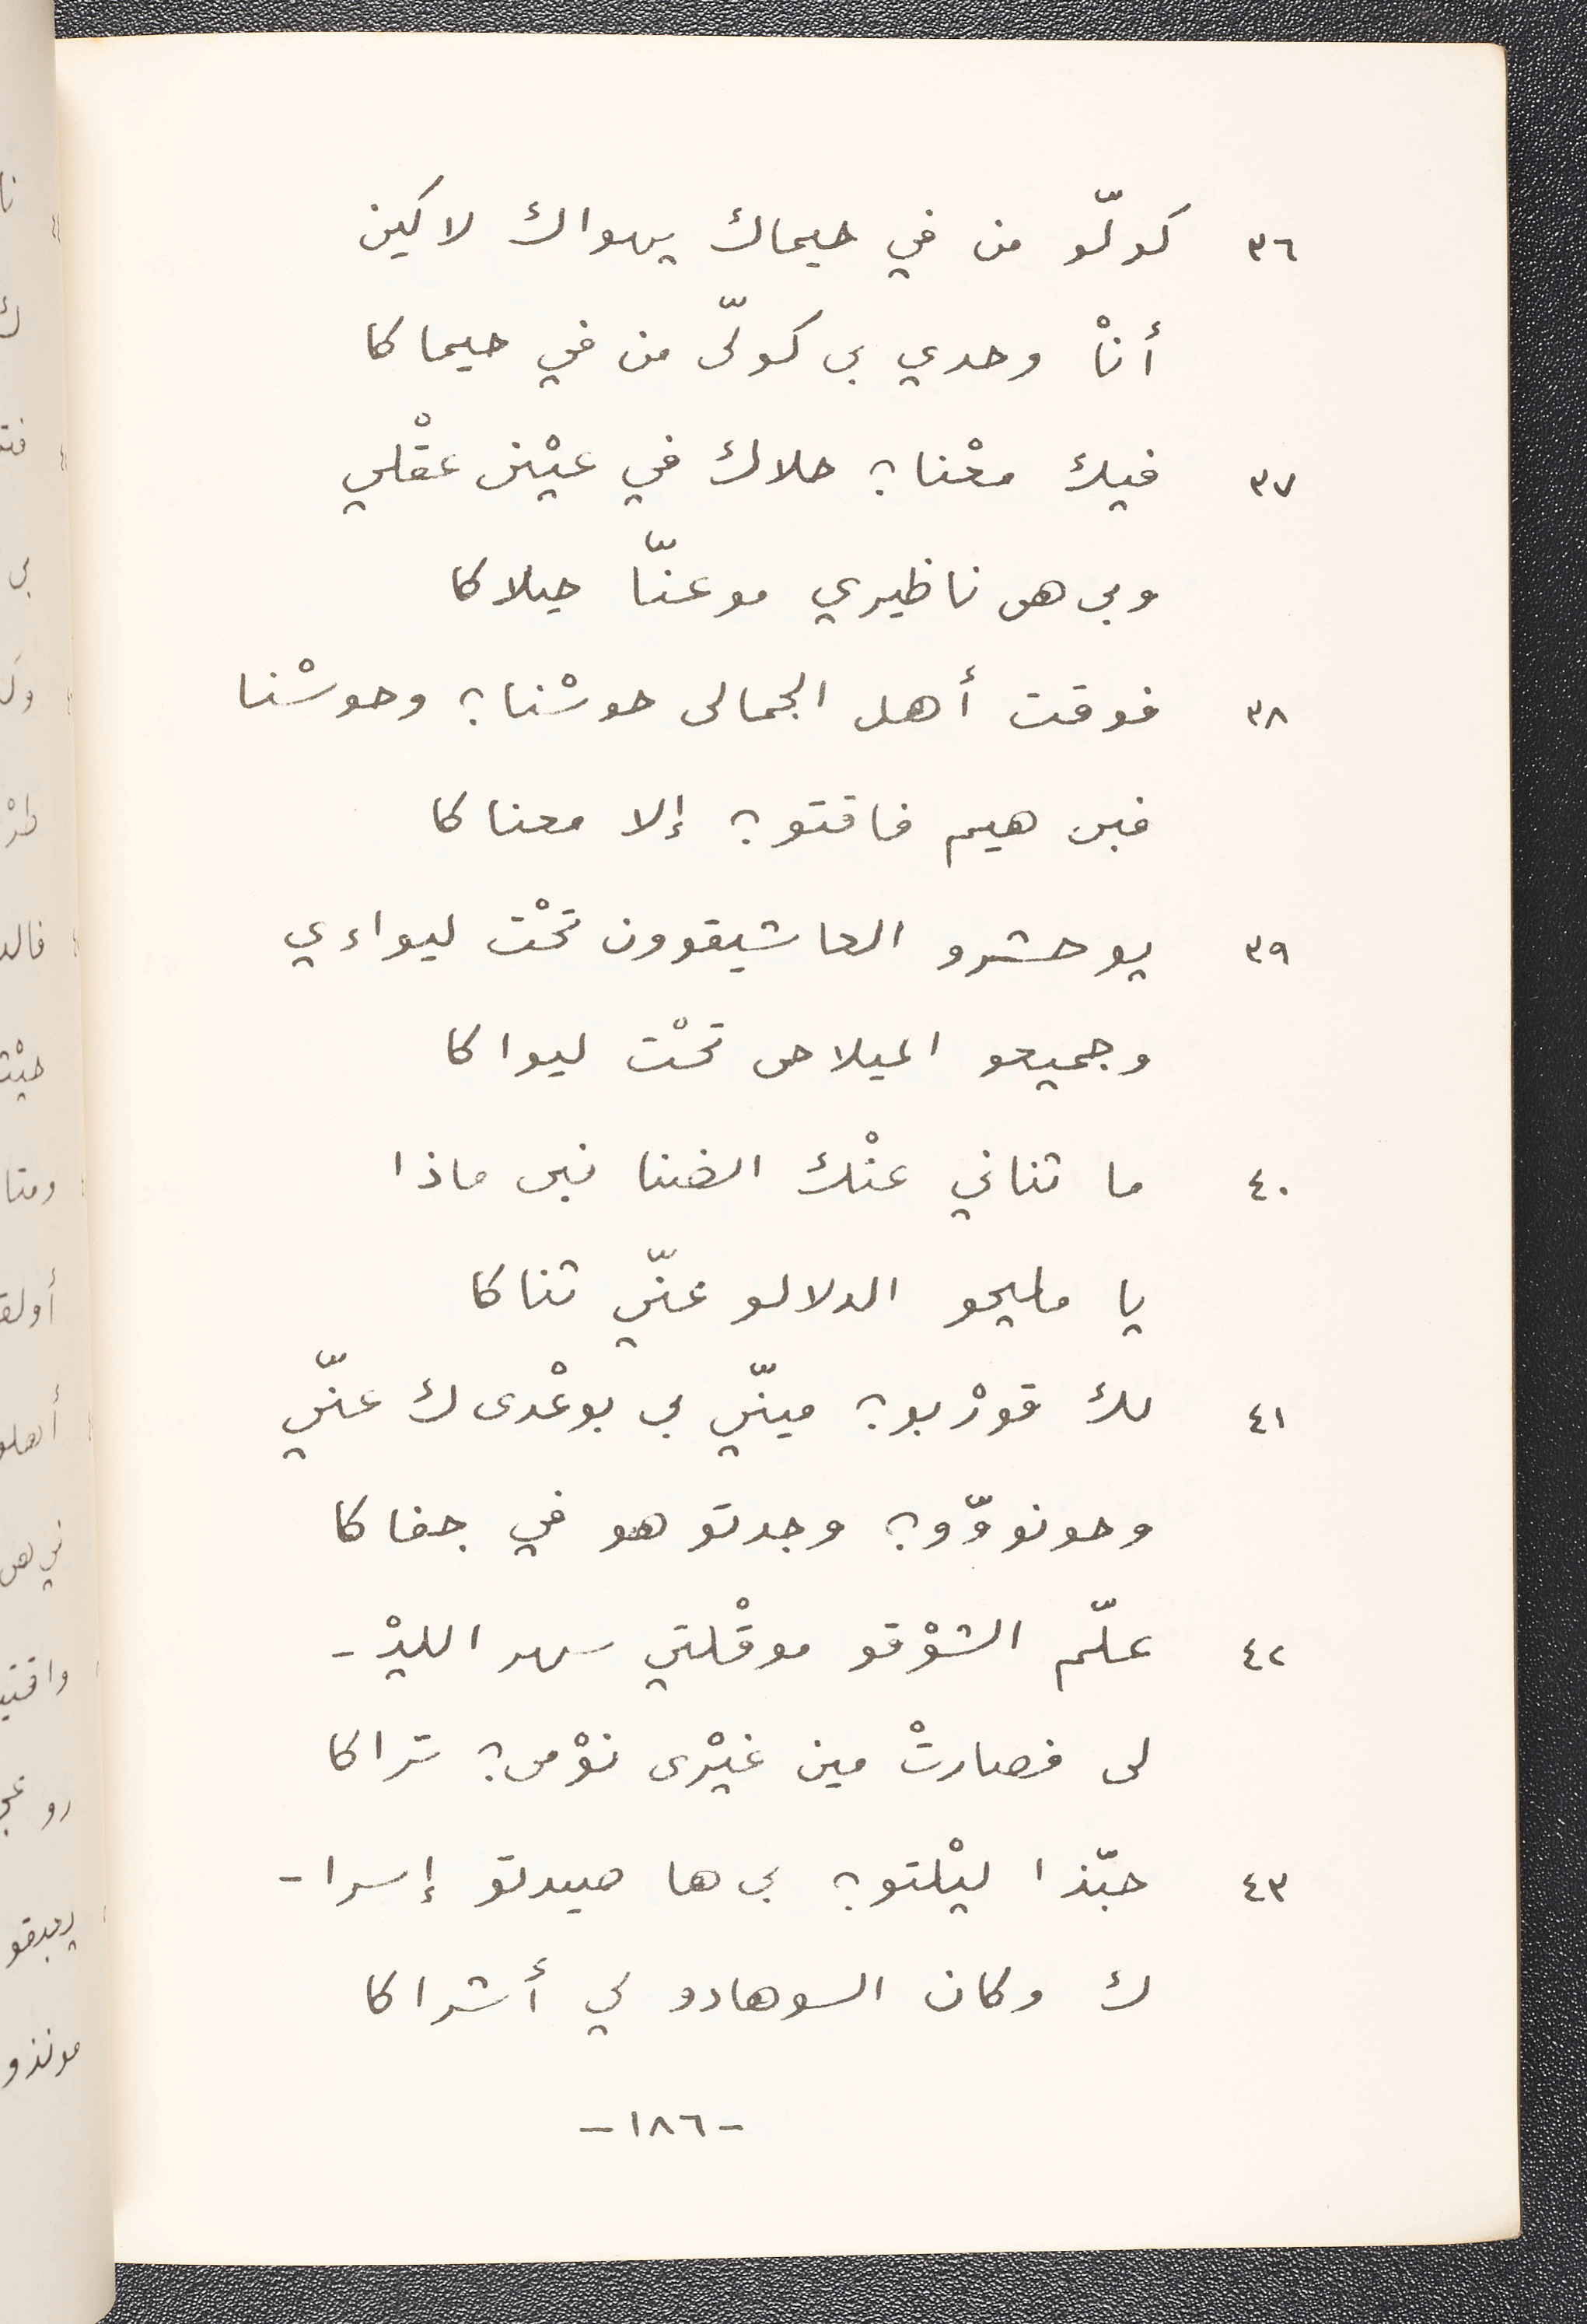 ٣٦ كولّو من في حيماك يهواك لاكين
أناْ وحدي بى كولّى من في حيماكا
٣٧ فيك معْنا؟ حلاك في عيْنى عقْلي
وبى هى ناظيري موعنّا حيلاكا
٣٨ فوقت أهل الجمالى حوسْنا؟ وحوسْنا
فبى هيم فاقتو؟ إلا معناكا
٣٩ يوحشرو العاشيقوون تحْت ليواءي
وجميعو الميلاحى تحْت ليواكا
٤٠ ما تناني عنْك الضنا فبى ماذا
يا مليحو الدلالو عنّي تناكا
٤١ لك قورْبو؟ مينّي بى بوعْدى ك عنّي
وحونووّو؟ وجدتو هو في جفاكا
٤٢ علّم الشوْقو موقْلتي سهر الليْـ -
لى فصارتْ مين غيْرى نوْمى؟ تراكا
٤٣ حبّذا ليْلتو؟ بى ها صيدتو إسرا -
ك وكان السوهادو لي أشراكا
-١٨٦-